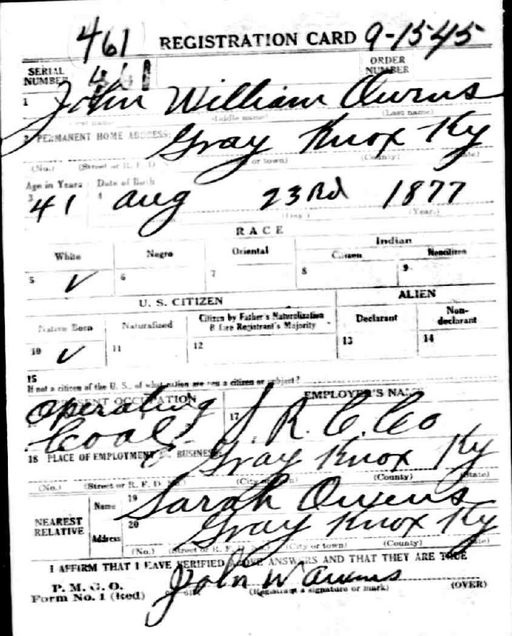 461 REGISTRATION CARD 9-15-45
SERIAL NUMBER 461 ORDER NUMBER
1 John William Owens
(Middle name) (Last name)
2 PERMANENT HOME ADDRESS: Gray Knox Ky
(No.) (Street or R. F. D.) or town) (County)
Age in Years Date of Birth
3 41 4 Aug 23rd 1877
(Year.)
RACE
White Negro Oriental Indian
Citizen Noncitizen
5 ✓ 6 7 8 9
U. S. CITIZEN ALIEN
Native Born Naturalized Citizen by Father's Naturalization Before Registrant's Majority Declarant Non-declarant
10 ✓ 11 12 13 14
15
If not a citizen of the U. S., of what nation are you a citizen or subject?
PRESENT OCCUPATION EMPLOYER'S NAME
Operating 17
Coal R. C. Co
18 PLACE OF EMPLOYMENT OR BUSINESS: Gray Knox Ky
(No.) (Street or R. F. D.) (City or town) (County) (State)
NEAREST RELATIVE
Name 19 Sarah Owens
Address 20 Gray Knox Ky
(No.) (Street or R. F. (City or town) (County) (State)
I AFFIRM THAT I HAVE VERIFIED ABOVE ANSWERS AND THAT THEY ARE TRUE
P. M. G. O.
Form No. 1 (Red) John W Owens
(Registrant's signature or mark) (OVER)